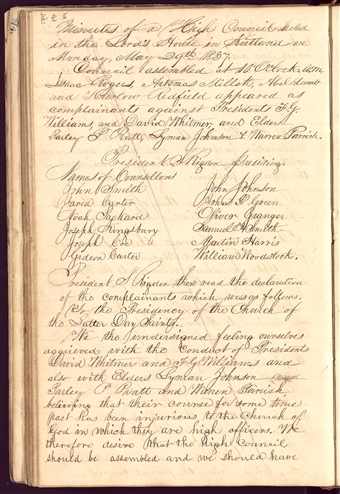 Minutes of a High Council held
in the Lord's House in Kirtland on
Monday, May 29th 1837.
Council assembled at 10 O'Clock A.M.
Isaac Rogers, Artemas Millett, Abel Lamb
and Harlow Redfield appeared as
complainants against Presidents F. G.
Williams and David Whitmer and Elders
Parley P. Pratt, Lyman Johnson & Warren Parrish.
President S Rigdon presiding.
Names of Counsellors
John Smith John Johnson
Jared Carter John P. Green
Noah Packard Oliver Granger
Joseph Kingsbury Samuel H Smith
Joseph Coe Martin Harris
Gideon Carter William Woodstock.
President S Rigdon then read the declaration
of the complainants which was as follows.
To the Presidency of the Church of
the Latter Day Saints.
We the undersigned feeling ourselves
aggrieved with the Conduct of Presidents
David Whitmer and F. G. Williams and
also with Elders Lyman Johnson
Parley P. Pratt and Warren Parrish
believing that their course for some time
past has been injurious to the Church of
God in which they are high officers. We
therefore desire that the high Council
should be assembled and we should have